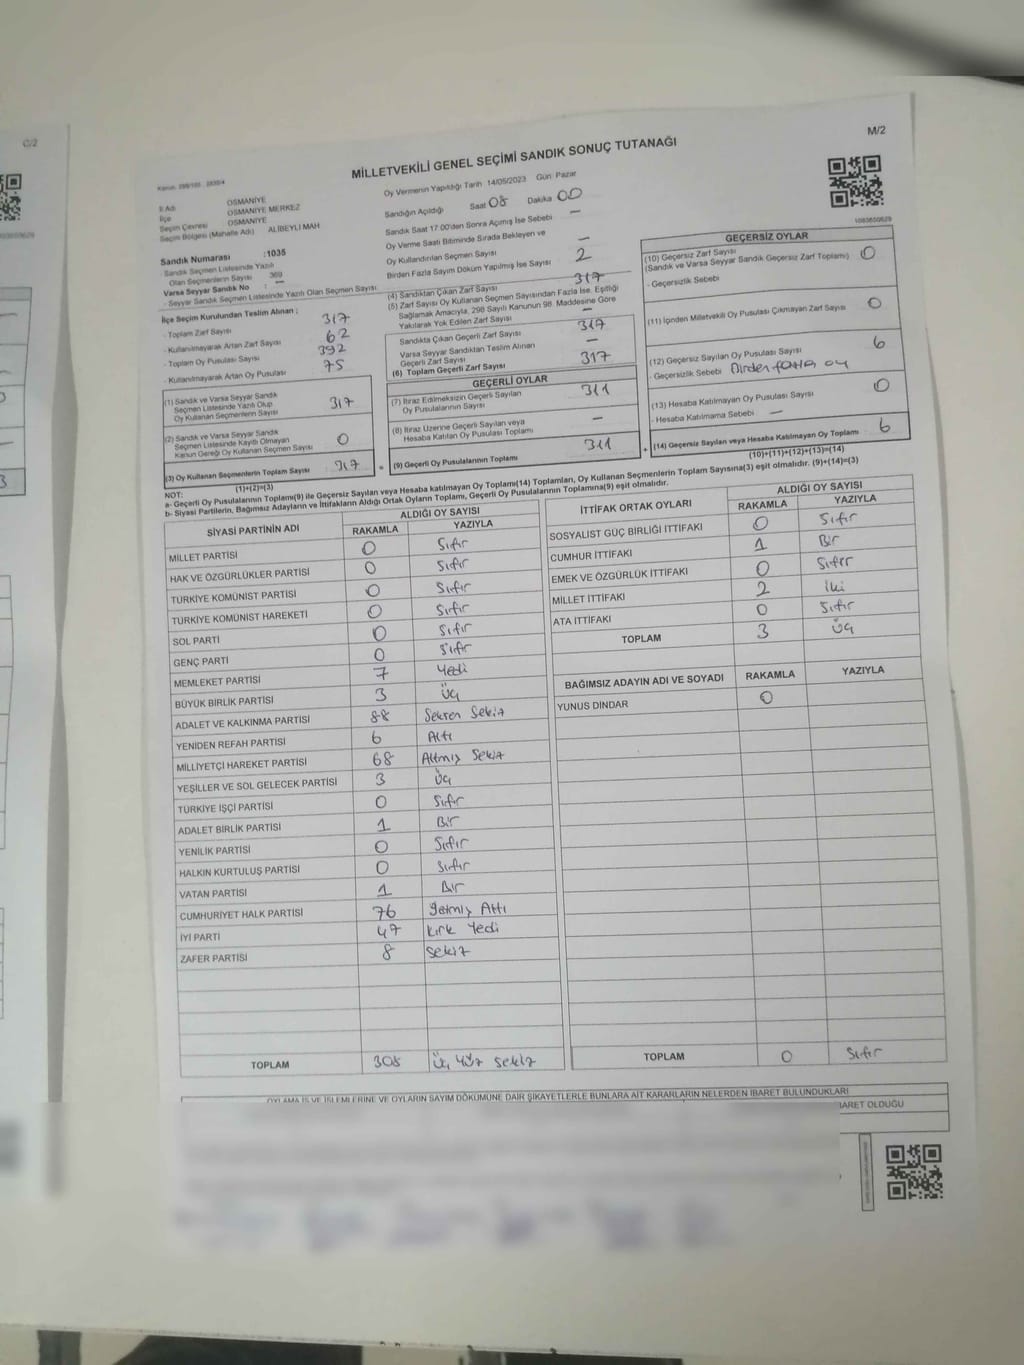 C/2
M/2
MİLLETVEKİLİ GENEL SEÇİMİ SANDIK SONUÇ TUTANAĞI
İl Adı OSMANİYE
İlçe OSMANİYE MERKEZ
Seçim Çevresi OSMANİYE
Seçim Bölgesi (Mahalle Adı) ALİBEYLİ MAH
Sandık Numarası :1035
- Sandık Seçmen Listesinde Yazılı
Olan Seçmenlerin Sayısı 369
Varsa Seyyar Sandık No : –
- Seyyar Sandık Seçmen Listesinde Yazılı Olan Seçmen Sayısı
Oy Vermenin Yapıldığı Tarih 14/05/2023 Gün Pazar
Sandığın Açıldığı Saat 08 Dakika 00
Sandık Saat 17:00'den Sonra Açımış İse Sebebi –
Oy Verme Saati Bitiminde Sırada Bekleyen ve
Oy Kullandırılan Seçmen Sayısı –
Birden Fazla Sayım Döküm Yapılmış İse Sayısı 2
İlçe Seçim Kurulundan Teslim Alınan ;
- Toplam Zarf Sayısı 317
- Kullanılmayarak Artan Zarf Sayısı 62
- Toplam Oy Pusulası Sayısı 392
- Kullanılmayarak Artan Oy Pusulası 75
(1) Sandık ve Varsa Seyyar Sandık
Seçmen Listesinde Yazılı Olup
Oy Kullanan Seçmenlerin Sayısı 317
(2) Sandık ve Varsa Seyyar Sandık
Seçmen Listesinde Kayıtlı Olmayan
Kanun Gereği Oy Kullanan Seçmen Sayısı 0
(3) Oy Kullanan Seçmenlerin Toplam Sayısı 317
(1)+(2)=(3)
(4) Sandıktan Çıkan Zarf Sayısı 317
(5) Zarf Sayısı Oy Kullanan Seçmen Sayısından Fazla İse, Eşitliği
Sağlamak Amacıyla, 298 Sayılı Kanunun 98. Maddesine Göre
Yakılarak Yok Edilen Zarf Sayısı –
Sandıkta Çıkan Geçerli Zarf Sayısı 317
Varsa Seyyar Sandıktan Teslim Alınan
Geçerli Zarf Sayısı –
(6) Toplam Geçerli Zarf Sayısı 317
GEÇERLİ OYLAR
(7) İtiraz Edilmeksizin Geçerli Sayılan
Oy Pusulalarının Sayısı 311
(8) İtiraz Üzerine Geçerli Sayılan veya
Hesaba Katılan Oy Pusulası Toplamı –
(9) Geçerli Oy Pusulalarının Toplamı 311
GEÇERSİZ OYLAR
(10) Geçersiz Zarf Sayısı
(Sandık ve Varsa Seyyar Sandık Geçersiz Zarf Toplamı) 0
- Geçersizlik Sebebi
(11) İçinden Milletvekili Oy Pusulası Çıkmayan Zarf Sayısı 0
(12) Geçersiz Sayılan Oy Pusulası Sayısı 6
- Geçersizlik Sebebi Birden fazla oy
(13) Hesaba Katılmayan Oy Pusulası Sayısı 0
- Hesaba Katılmama Sebebi –
(14) Geçersiz Sayılan veya Hesaba Katılmayan Oy Toplamı 6
(10)+(11)+(12)+(13)=(14)
NOT:
a- Geçerli Oy Pusulalarının Toplamı(9) ile Geçersiz Sayılan veya Hesaba Katılmayan Oy Toplamı(14) Toplamları, Oy Kullanan Seçmenlerin Toplam Sayısına(3) eşit olmalıdır. (9)+(14)=(3)
b- Siyasi Partilerin, Bağımsız Adayların ve İttifakların Aldığı Ortak Oyların Toplamı, Geçerli Oy Pusulalarının Toplamına(9) eşit olmalıdır.
SİYASİ PARTİNİN ADI ALDIĞI OY SAYISI
RAKAMLA YAZIYLA
MİLLET PARTİSİ 0 Sıfır
HAK VE ÖZGÜRLÜKLER PARTİSİ 0 Sıfır
TÜRKİYE KOMÜNİST PARTİSİ 0 Sıfır
TÜRKİYE KOMÜNİST HAREKETİ 0 Sıfır
SOL PARTİ 0 Sıfır
GENÇ PARTİ 0 Sıfır
MEMLEKET PARTİSİ 7 Yedi
BÜYÜK BİRLİK PARTİSİ 3 Üç
ADALET VE KALKINMA PARTİSİ 88 Seksen Sekiz
YENİDEN REFAH PARTİSİ 6 Altı
MİLLİYETÇİ HAREKET PARTİSİ 68 Altmış Sekiz
YEŞİLLER VE SOL GELECEK PARTİSİ 3 Üç
TÜRKİYE İŞÇİ PARTİSİ 0 Sıfır
ADALET BİRLİK PARTİSİ 1 Bir
YENİLİK PARTİSİ 0 Sıfır
HALKIN KURTULUŞ PARTİSİ 0 Sıfır
VATAN PARTİSİ 1 Bir
CUMHURİYET HALK PARTİSİ 76 Yetmiş Altı
İYİ PARTİ 47 Kırk Yedi
ZAFER PARTİSİ 8 Sekiz
TOPLAM 308 Üç Yüz Sekiz
İTTİFAK ORTAK OYLARI ALDIĞI OY SAYISI
RAKAMLA YAZIYLA
SOSYALİST GÜÇ BİRLİĞİ İTTİFAKI 0 Sıfır
CUMHUR İTTİFAKI 1 Bir
EMEK VE ÖZGÜRLÜK İTTİFAKI 0 Sıfır
MİLLET İTTİFAKI 2 İki
ATA İTTİFAKI 0 Sıfır
TOPLAM 3 Üç
BAĞIMSIZ ADAYIN ADI VE SOYADI RAKAMLA YAZIYLA
YUNUS DINDAR 0
TOPLAM 0 Sıfır
OYLAMA İŞ VE İŞLEMLERİNE VE OYLARIN SAYIM DÖKÜMÜNE DAİR ŞİKAYETLERLE BUNLARA AİT KARARLARIN NELERDEN İBARET BULUNDUKLARI
İBARET OLDUĞU